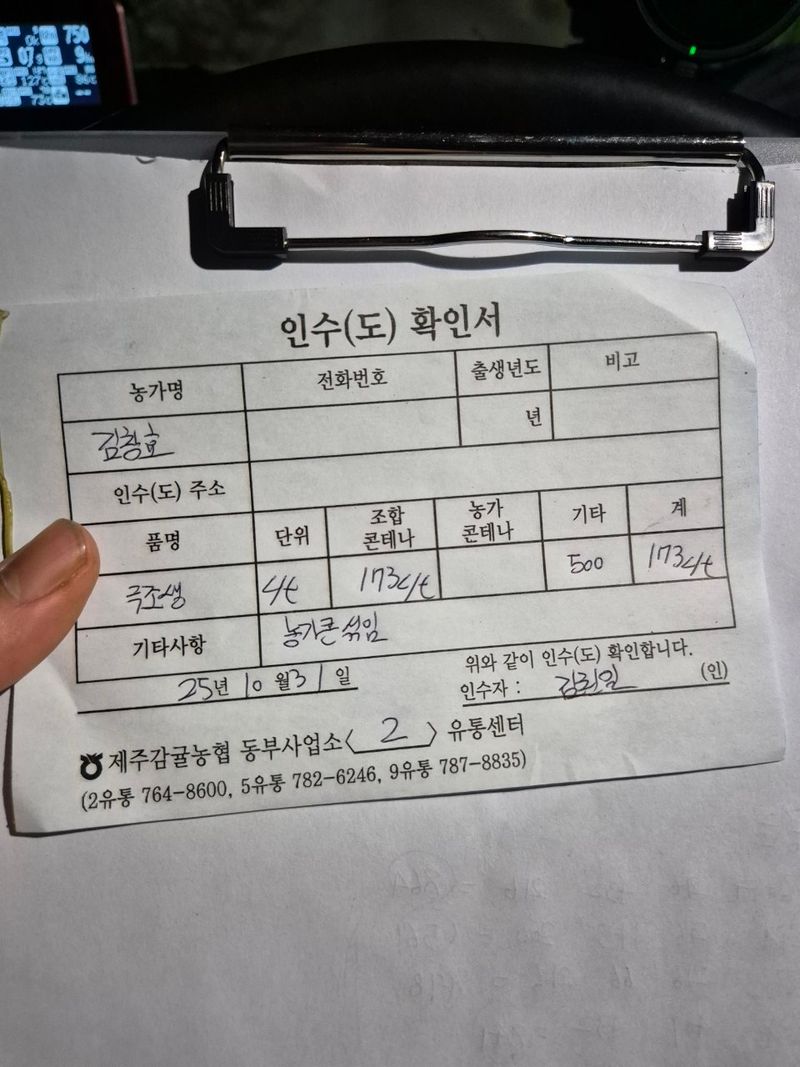 인수(도) 확인서
농가명 전화번호 출생년도 비고
김창호 년
인수(도) 주소
품명 단위 조합 콘테나 농가 콘테나 기타 계
극조생 c/t 173c/t 500 173c/t
기타사항 농가콘 섞임
25년 10월 31일
위와 같이 인수(도) 확인합니다.
인수자 : (인)
제주감귤농협 동부사업소〈 2 〉유통센터
(2유통 764-8600, 5유통 782-6246, 9유통 787-8835)